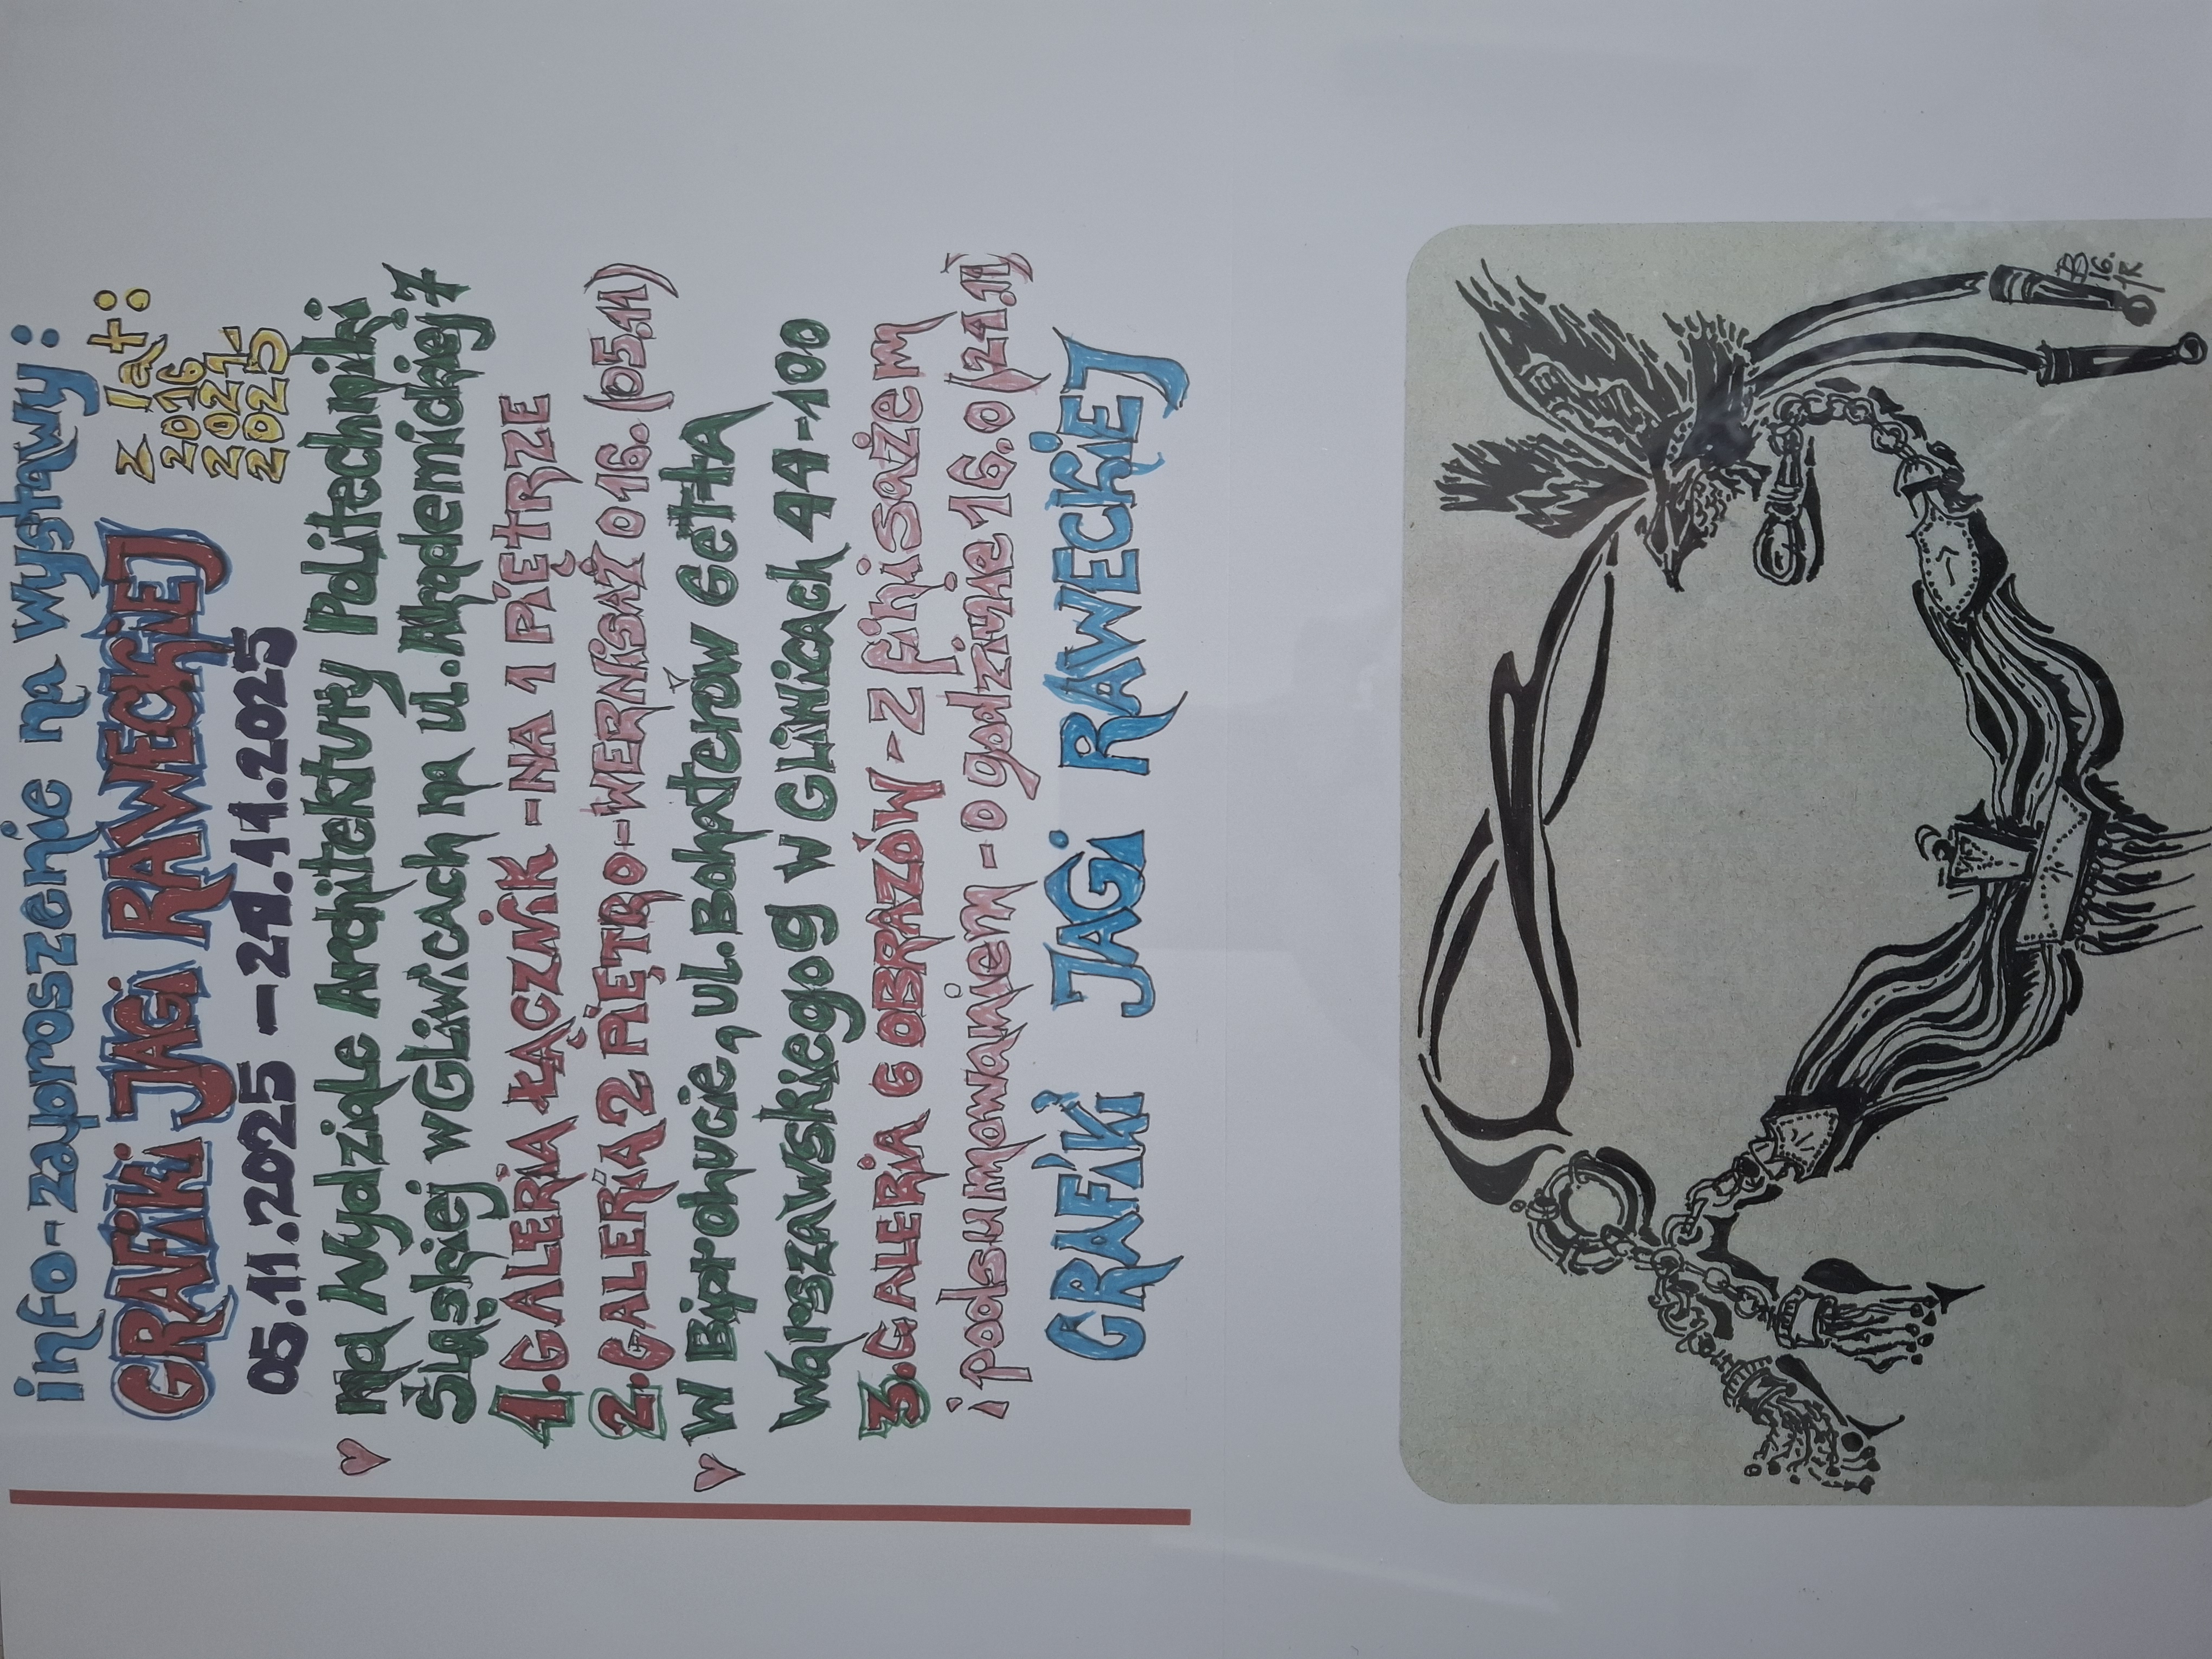 info-zaproszenie na wystawy:
GRAFIKI JAGI RAWECKIEJ
z lat:
2016
2021-
2025
05.11.2025 - 21.11.2025
na Wydziale Architektury Politechniki
Śląskiej w Gliwicach na ul. Akademickiej 7
1. GALERIA ŁĄCZNIK - NA 1 PIĘTRZE
2. GALERIA 2 PIĘTRO - WERNISAŻ O 16. (05.11)
W Biprohucie, ul. Bohaterów Getta
Warszawskiego 9 w Gliwicach 44-100
3. GALERIA 6 OBRAZÓW - z finisażem
i podsumowaniem - o godzinie 16.0 (21.11)
GRAFIKI JAGI RAWECKIEJ
16.